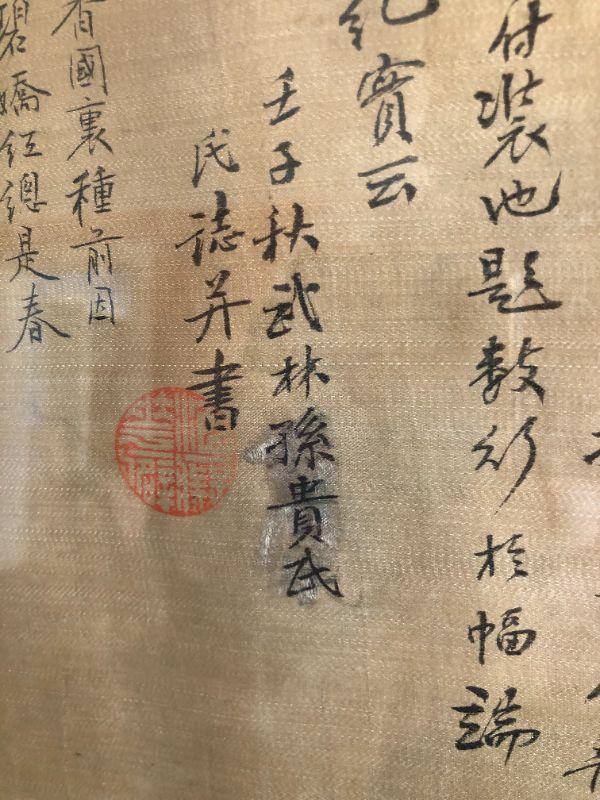 付裝池題數行於幅端
紀實云
壬子秋武林孫貴氏
氏誌并書
香國裏種前因
碧嬌紅總是春